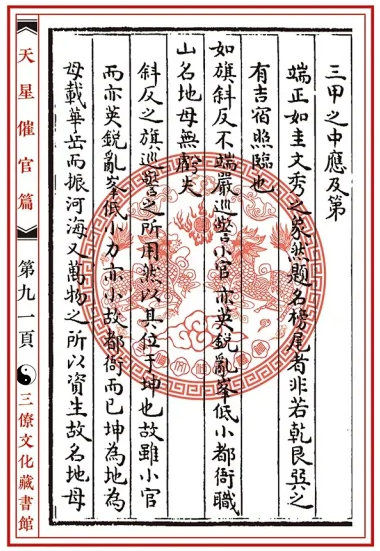 三甲之中應及第
端正如圭文秀之象然題名榜尾者非若乾艮巽之
有吉宿照臨也
如旗斜反不端嚴巡警小官亦英銳亂峯低小都衙職
山名地母無虧失
斜反之旗巡警之所用然以其位于坤也故雖小官
而亦英銳亂峯低小力亦小故都衙而已坤為地為
母載華岳而振河海又萬物之所以資生故名地母
《天星催官篇》
第九一頁
三僚文化藏書館